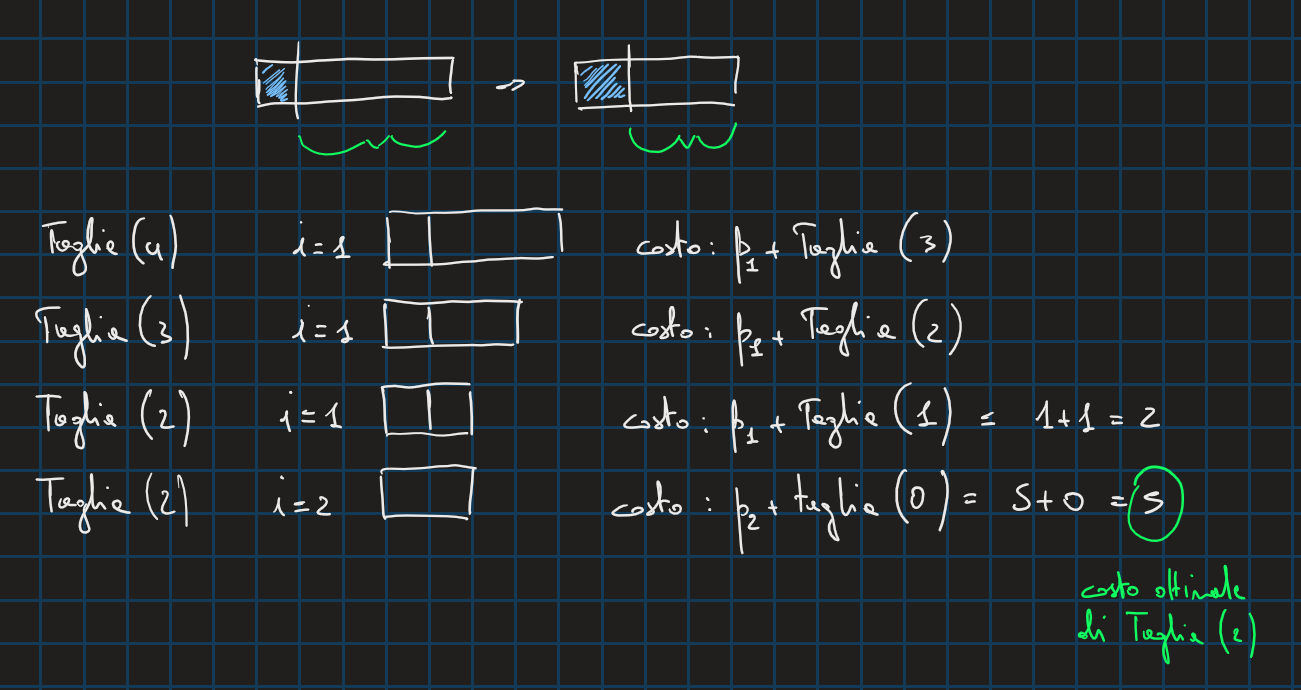 Taglia (4) i=1 costo: p₁ + Taglia (3)
Taglia (3) i=1 costo: p₁ + Taglia (2)
Taglia (2) i=1 costo: p₁ + Taglia (1) = 1+1 = 2
Taglia (2) i=2 costo: p₂ + taglia (0) = 5+0 = 5
costo ottimale
di Taglia (2)